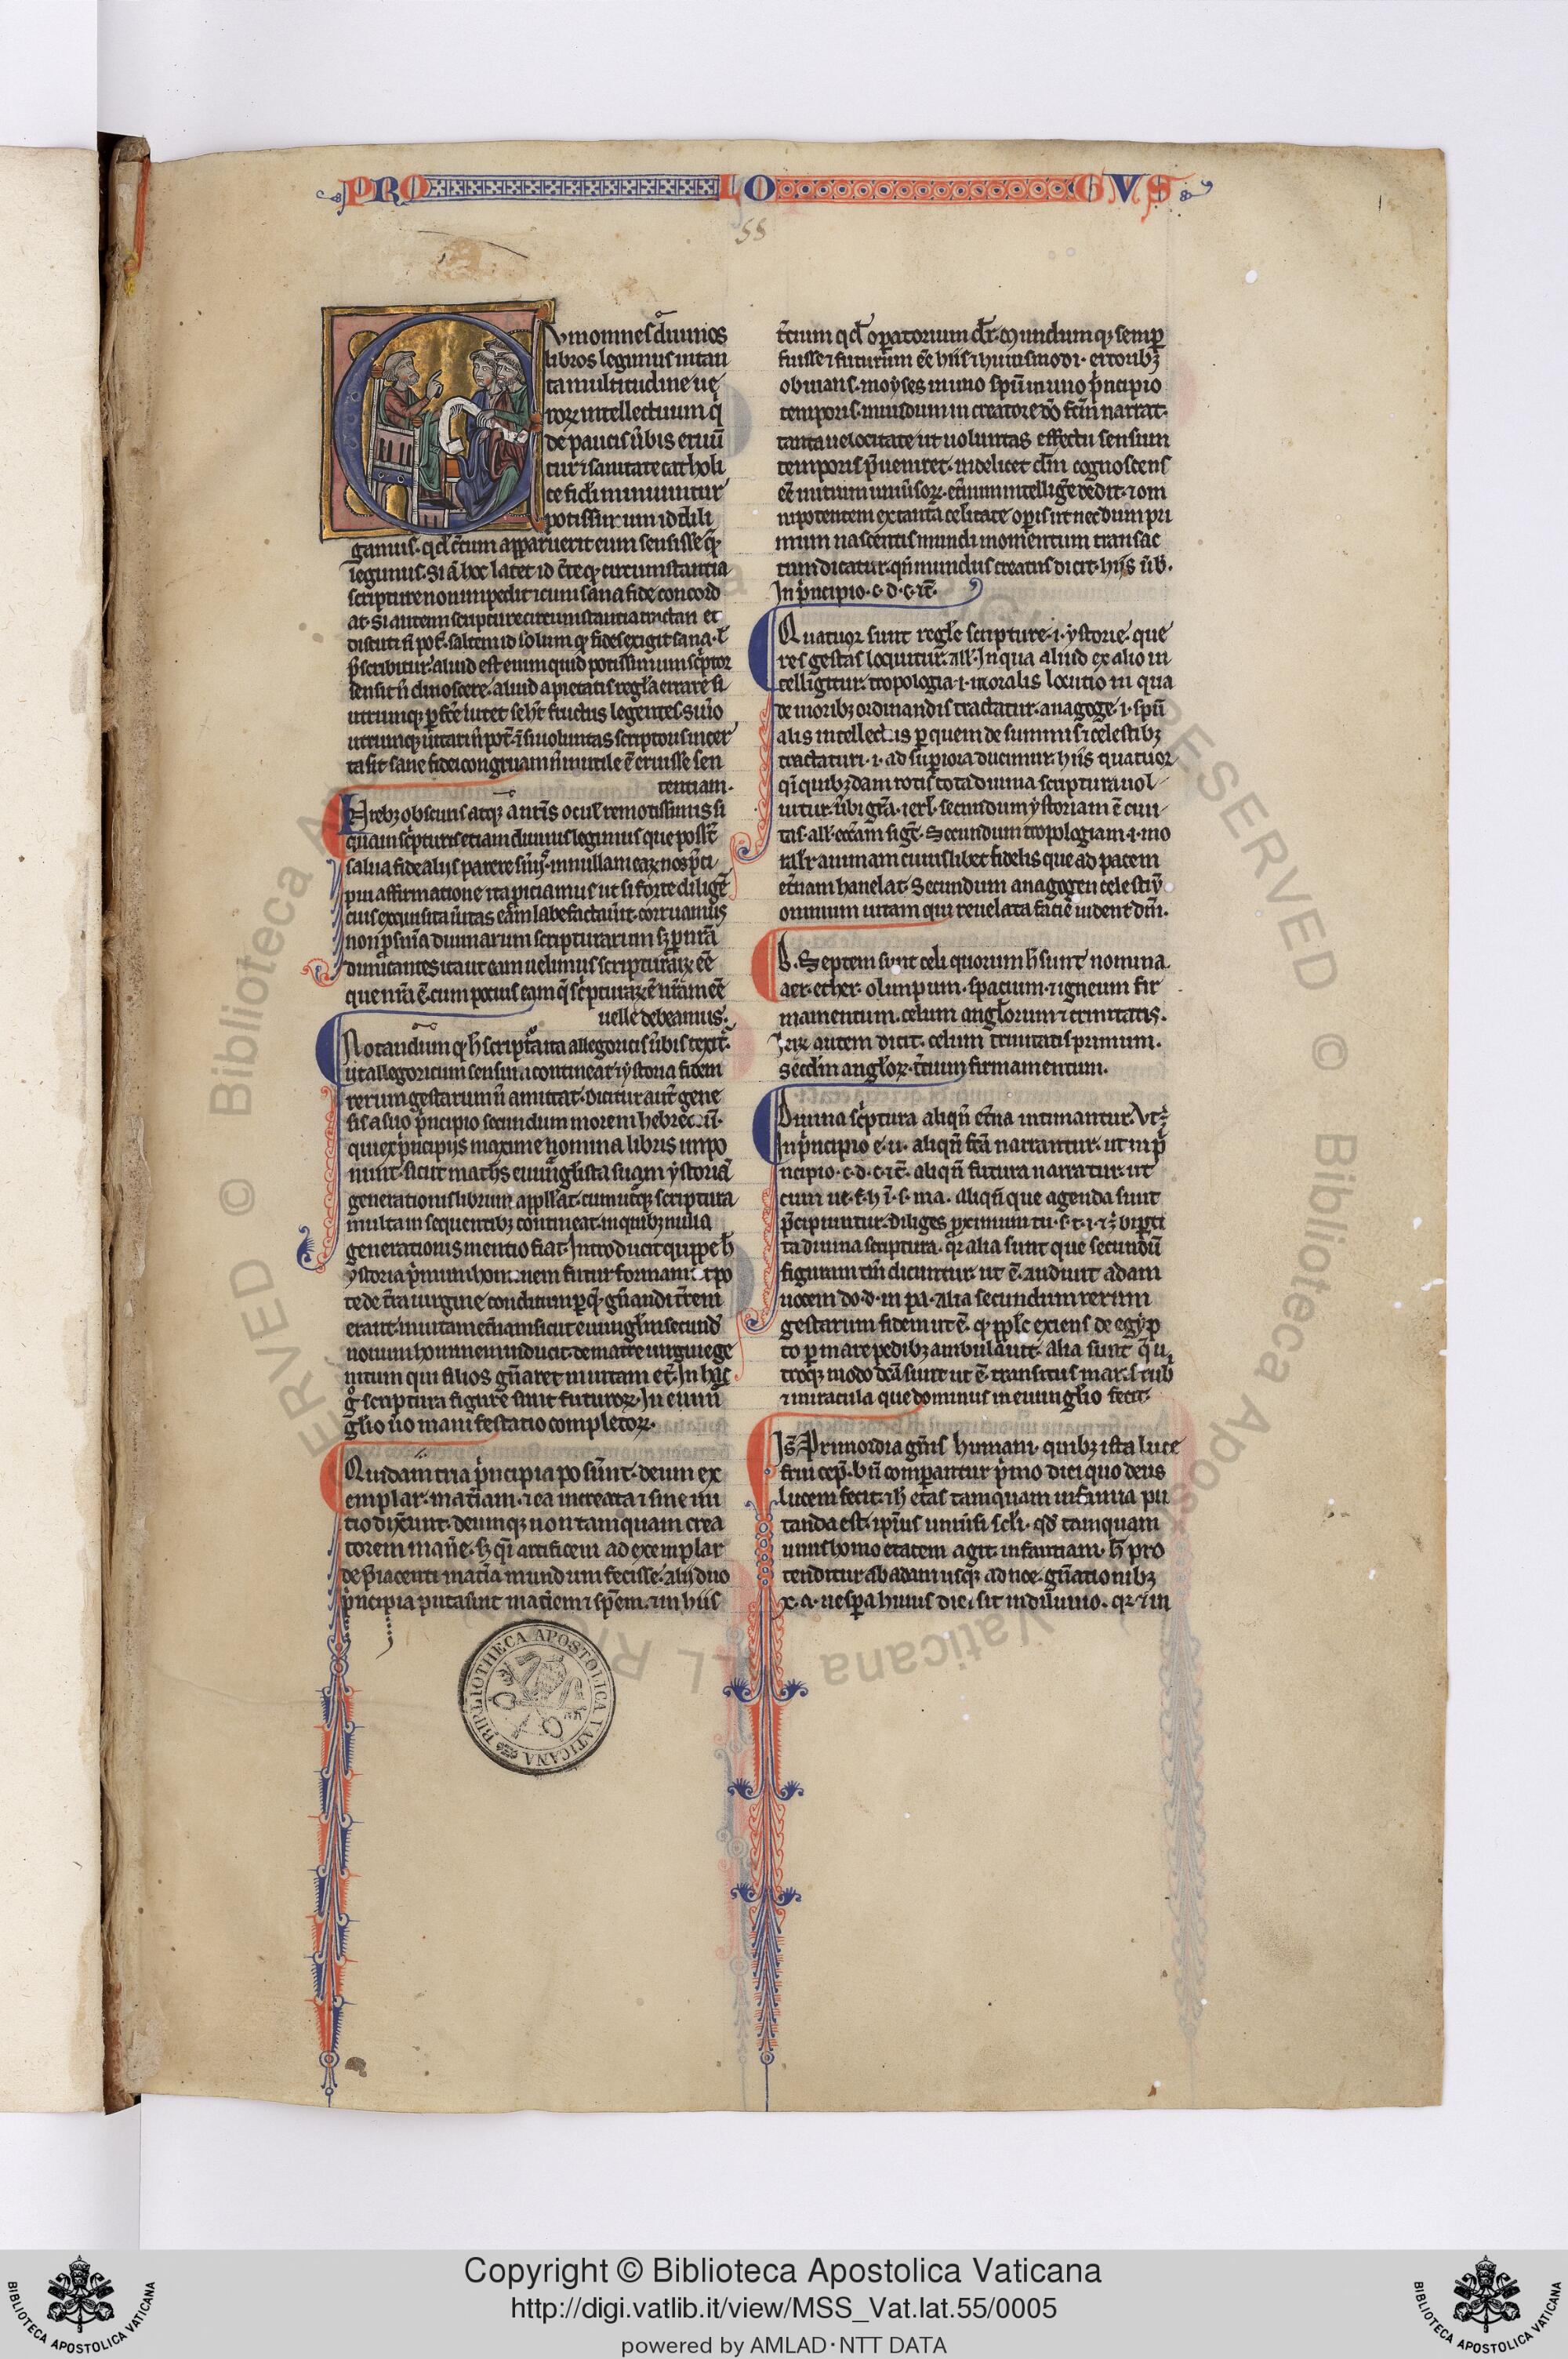 PROLOGVS
1
55
Cvm omnes diuinos
libros legimus in tan
ta multitudine ue
rorꝝ intellectuum q̇
de paucis ũbis eruũ
tur ⁊ sanitate catholi
ce fidi muniuntur
potissimum id dili
gamus. qđ c̃tum apparuerit eum sensisse q̃
legimus. Si ã hoc latet id c̃te qꝫ circumstantia
scripture non impedit ⁊ cum sana fide concord
at. Si autem scripture circumstantia tractari et
discuti ñ pot̃. saltem id solum qꝫ fides exigit sana. l̃
p̃scribitur. aliud est enim quid potissimum sc̃ptor
senserit ñ dinoscere. aliud a pietatis regl̃a errare. si
utrumqꝫ
utrumqꝫ uitari ñ pot̃. ⁊ si uoluntas scriptoris incer
ta sit sane fidei congruam ñ inutile ẽ eruisse sen
tentiam.
In rebꝫ obscuris atqꝫ a nr̃is ocul̃ remotissimis si
qua in sc̃pturis etiam diuinis legimus que poss̃t
salua fide alijs parere
pni affirmatione ita piciamus ut si forte diligẽ
cius exquisita ũitas eam labefactauit. corruamus
non ꝓ sñia diuinarum scripturarum sꝫ ꝓ nr̃a
dimicantes ita ut eam uelimus scripturarꝝ eẽ
que nr̃a ẽ. cum pocius eam q̃ sc̃pturarꝝ ẽ nr̃am eẽ
uelle debeamus.
Notandum qꝫ h̃ scriptura ita allegoricis ũbis texit̃.
ut allegoricum sensum contineat ⁊ ystoria fidem
rerum gestarum ñ amittat. Dicitur aut̃ gene
sis a suo p̃ncipio secundum morem hebreorum.
qui ex p̃ncipijs maxime nomina libris impo
nunt. sicut math̃s euuãglista suam ystoriã
generationis librum appell̃at. cum utiqꝫ scriptura
multa in sequentibꝫ contineat. in quibꝫ nulla
generationis mentio fiat. Introducit quippe h̃
ystoria p̃mum hominem futur
te de t̃ra uirgine conditum
erant. in uitam et̃nam sicut euuãgl̃m secund̃
nouum hominem inducit. de matre uirgine ge
nitum qui filios gñaret in uitam et̃. In hac
g̃ scriptura figure sunt futurorꝝ. In euuã
glio ũo manifestatio completorꝝ.
Quidam tria p̃ncipia posũnt. deum ex
emplar. mat̃iam. ⁊ ea increata ⁊ sine ini
tio dix̃unt. deumqꝫ non tamquam crea
torem
de p̃iacenti mat̃ia mundum fecisse. alij duo
p̃ncipia putasunt mat̃iem ⁊ sp̃em. ⁊ in hiis
t̃cium qđ operatorium dr̃. Mundum qꝫ semꝑ
fuisse ⁊ futurum eẽ hiis ⁊ huiusmodi. erroribꝫ
obuians. moyses in uno sp̃u in uno p̃ncipio
temporis. mundum in creatore do fc̃m narrat.
tanta uelocitate ut uoluntas effectu sensum
temporis p̃ueniret. uidelicet dm̃ cognoscens
eẽ initium uniũsorꝝ. et̃num intellig̃e dedit. ⁊ om
nipotentem ex tanta celitate opis ut nec dum pri
mum nascentis mundi momentum transac
tum dicatur. qñ mundus creatus dicit̃. hiis ũb.
In p̃ncipio. c. d. c. ⁊c̃.
Quatuor sunt regl̃e scripture. i. ystorie. que
res gestas loquitur. all̃. In qua aliud ex alio in
telligitur. tropologia. i. moralis locutio in qua
de moribꝫ ordinandis tractatur. anagoge. i. sp̃ũ
alis intellectus ꝑ quem de summis ⁊ celestibꝫ
tractaturi. i. ad superiora ducimur. hiis quatuor
q̃i quibꝫdam rotis tota diuina scriptura uol
uitur. ũbi gr̃a. ierl̃. secundum ystoriam ẽ ciui
tas. all̃. ecc̃am sigt̃. Secundum tropologiam. i. mo
ralr̃ animam cuiuslibet fidelis que ad pacem
et̃nam hanelat. Secundum anagogen celestiũ
omnium uitam qui reuelata facie uident dm̃.
B. Septem sunt celi quorum h̃ sunt nomina.
aer. ether. olimpum. spacium. ⁊ igneum fir
mamentum. celum angl̃orum ⁊ trinitatis.
autem dicit. celum trinitatis primum.
secd̃m angl̃orꝝ. t̃cium firmamentum.
Diuina sc̃ptura aliqñ et̃na intimantur. Vt ꝫ̃.
In p̃ncipio e. u. aliqñ fc̃a narrantur. ut in p̃
ncipio. c. d. c. ⁊c̃. aliqñ futura narratur. ut
cum ue. f. h ĩ. s. ma. aliqñ que agenda sunt
p̃cipiuntur. diliges ꝓximum tu. s. t. i. ⁊ ꝫ̃ bipti
ta diuina scriptura. qꝛ alia sunt que secundũ
figuram tm̃ dicuntur. ut ẽ. audiuit adam
uocem do. d. in pa. Alia secundum rerum
gestarum fidem ut ẽ. qꝫ ppl̃s exiens de egyp
to ꝑ mare pedibꝫ ambulauit. Alia sunt q̃ u
troqꝫ modo dc̃a sunt ut ẽ transitus mar. s rub
⁊ miracula que dominus in euuãglio fecit.
Is̃. Primordia gñis humani. quibꝫ ista luce
frui cep. bñ comparantur p̃mo diei quo deus
lucem fecit. ⁊ h̃ etas tamquam infantia pu
tanda est. ip̃ius uniũsi scl̃i. qđ tamquam
unus homo etatem agit. infantiam. h̃ pro
tenditur ab adam usqꝫ ad noe. gñationibꝫ
x. a. uespa huius diei sit in diluuio. qꝛ ⁊ in
BIBLIOTHECA APOSTOLICA VATICANA
Copyright © Biblioteca Apostolica Vaticana
http://digi.vatlib.it/view/MSS_Vat.lat.55/0005
powered by AMLAD · NTT DATA
BIBLIOTECA APOSTOLICA VATICANA
BIBLIOTECA APOSTOLICA VATICANA